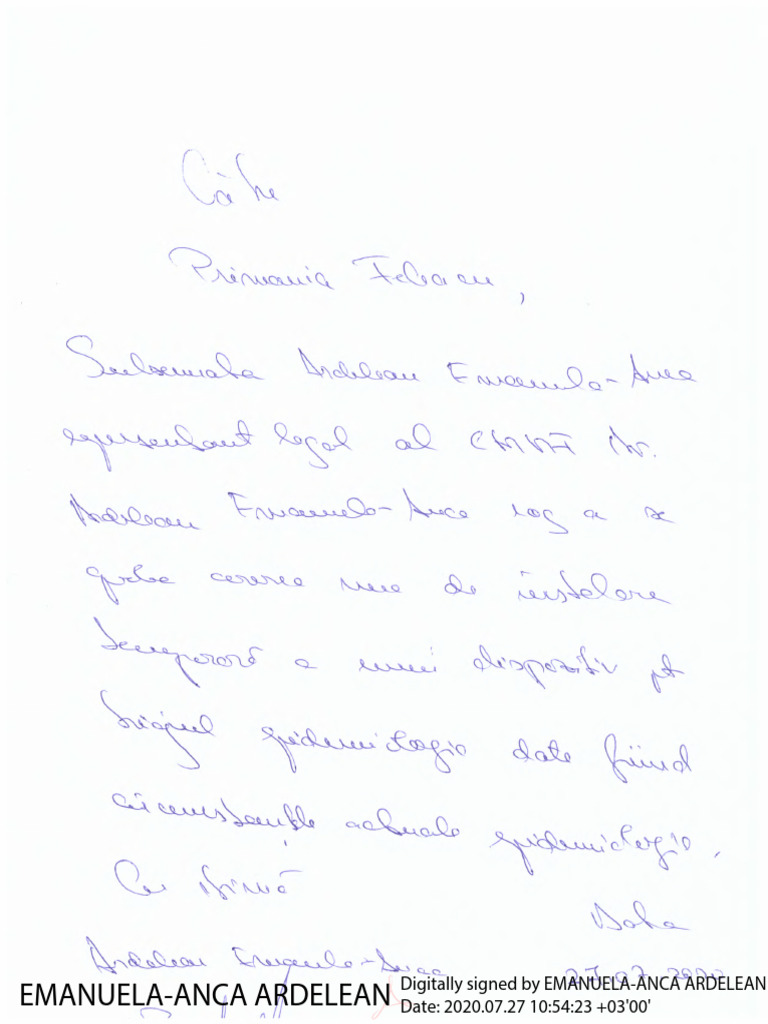 Către
Primăria Feleacu,
Subsemnata Ardelean Emanuela-Anca
reprezentant legal al CMVI Dr.
Ardelean Emanuela-Anca rog a se
cererea de instalare
temporară a unui dispozitiv pt
triajul epidemiologic date fiind
circumstanțele actuale epidemiologic.
Cu stimă
Data
Ardelean Emanuela-Anca 27.07.2020
EMANUELA-ANCA ARDELEAN
Digitally signed by EMANUELA-ANCA ARDELEAN
Date: 2020.07.27 10:54:23 +03'00'